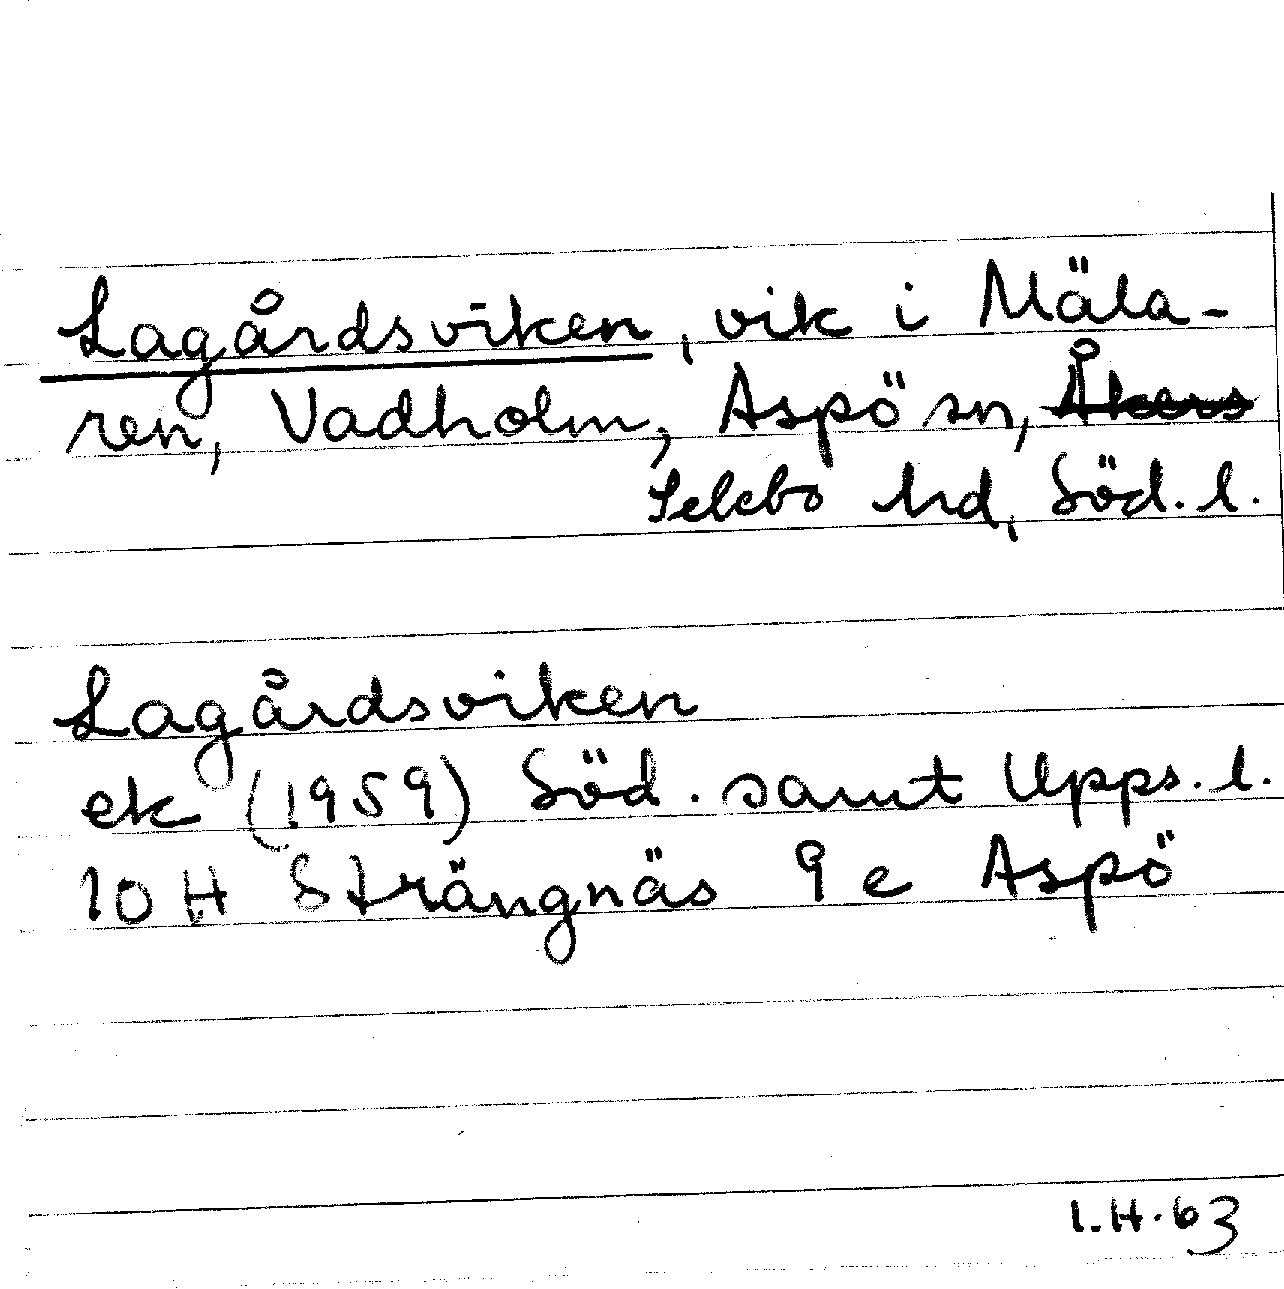 Lagårdsviken, vik i Mäla-
ren, Vadholm, Aspö sn, Åkers
Selebo hd, Söd. l.
Lagårdsviken
ek (1959) Söd. samt Upps. l.
10 H Strängnäs 9 e Aspö
I.H. 63